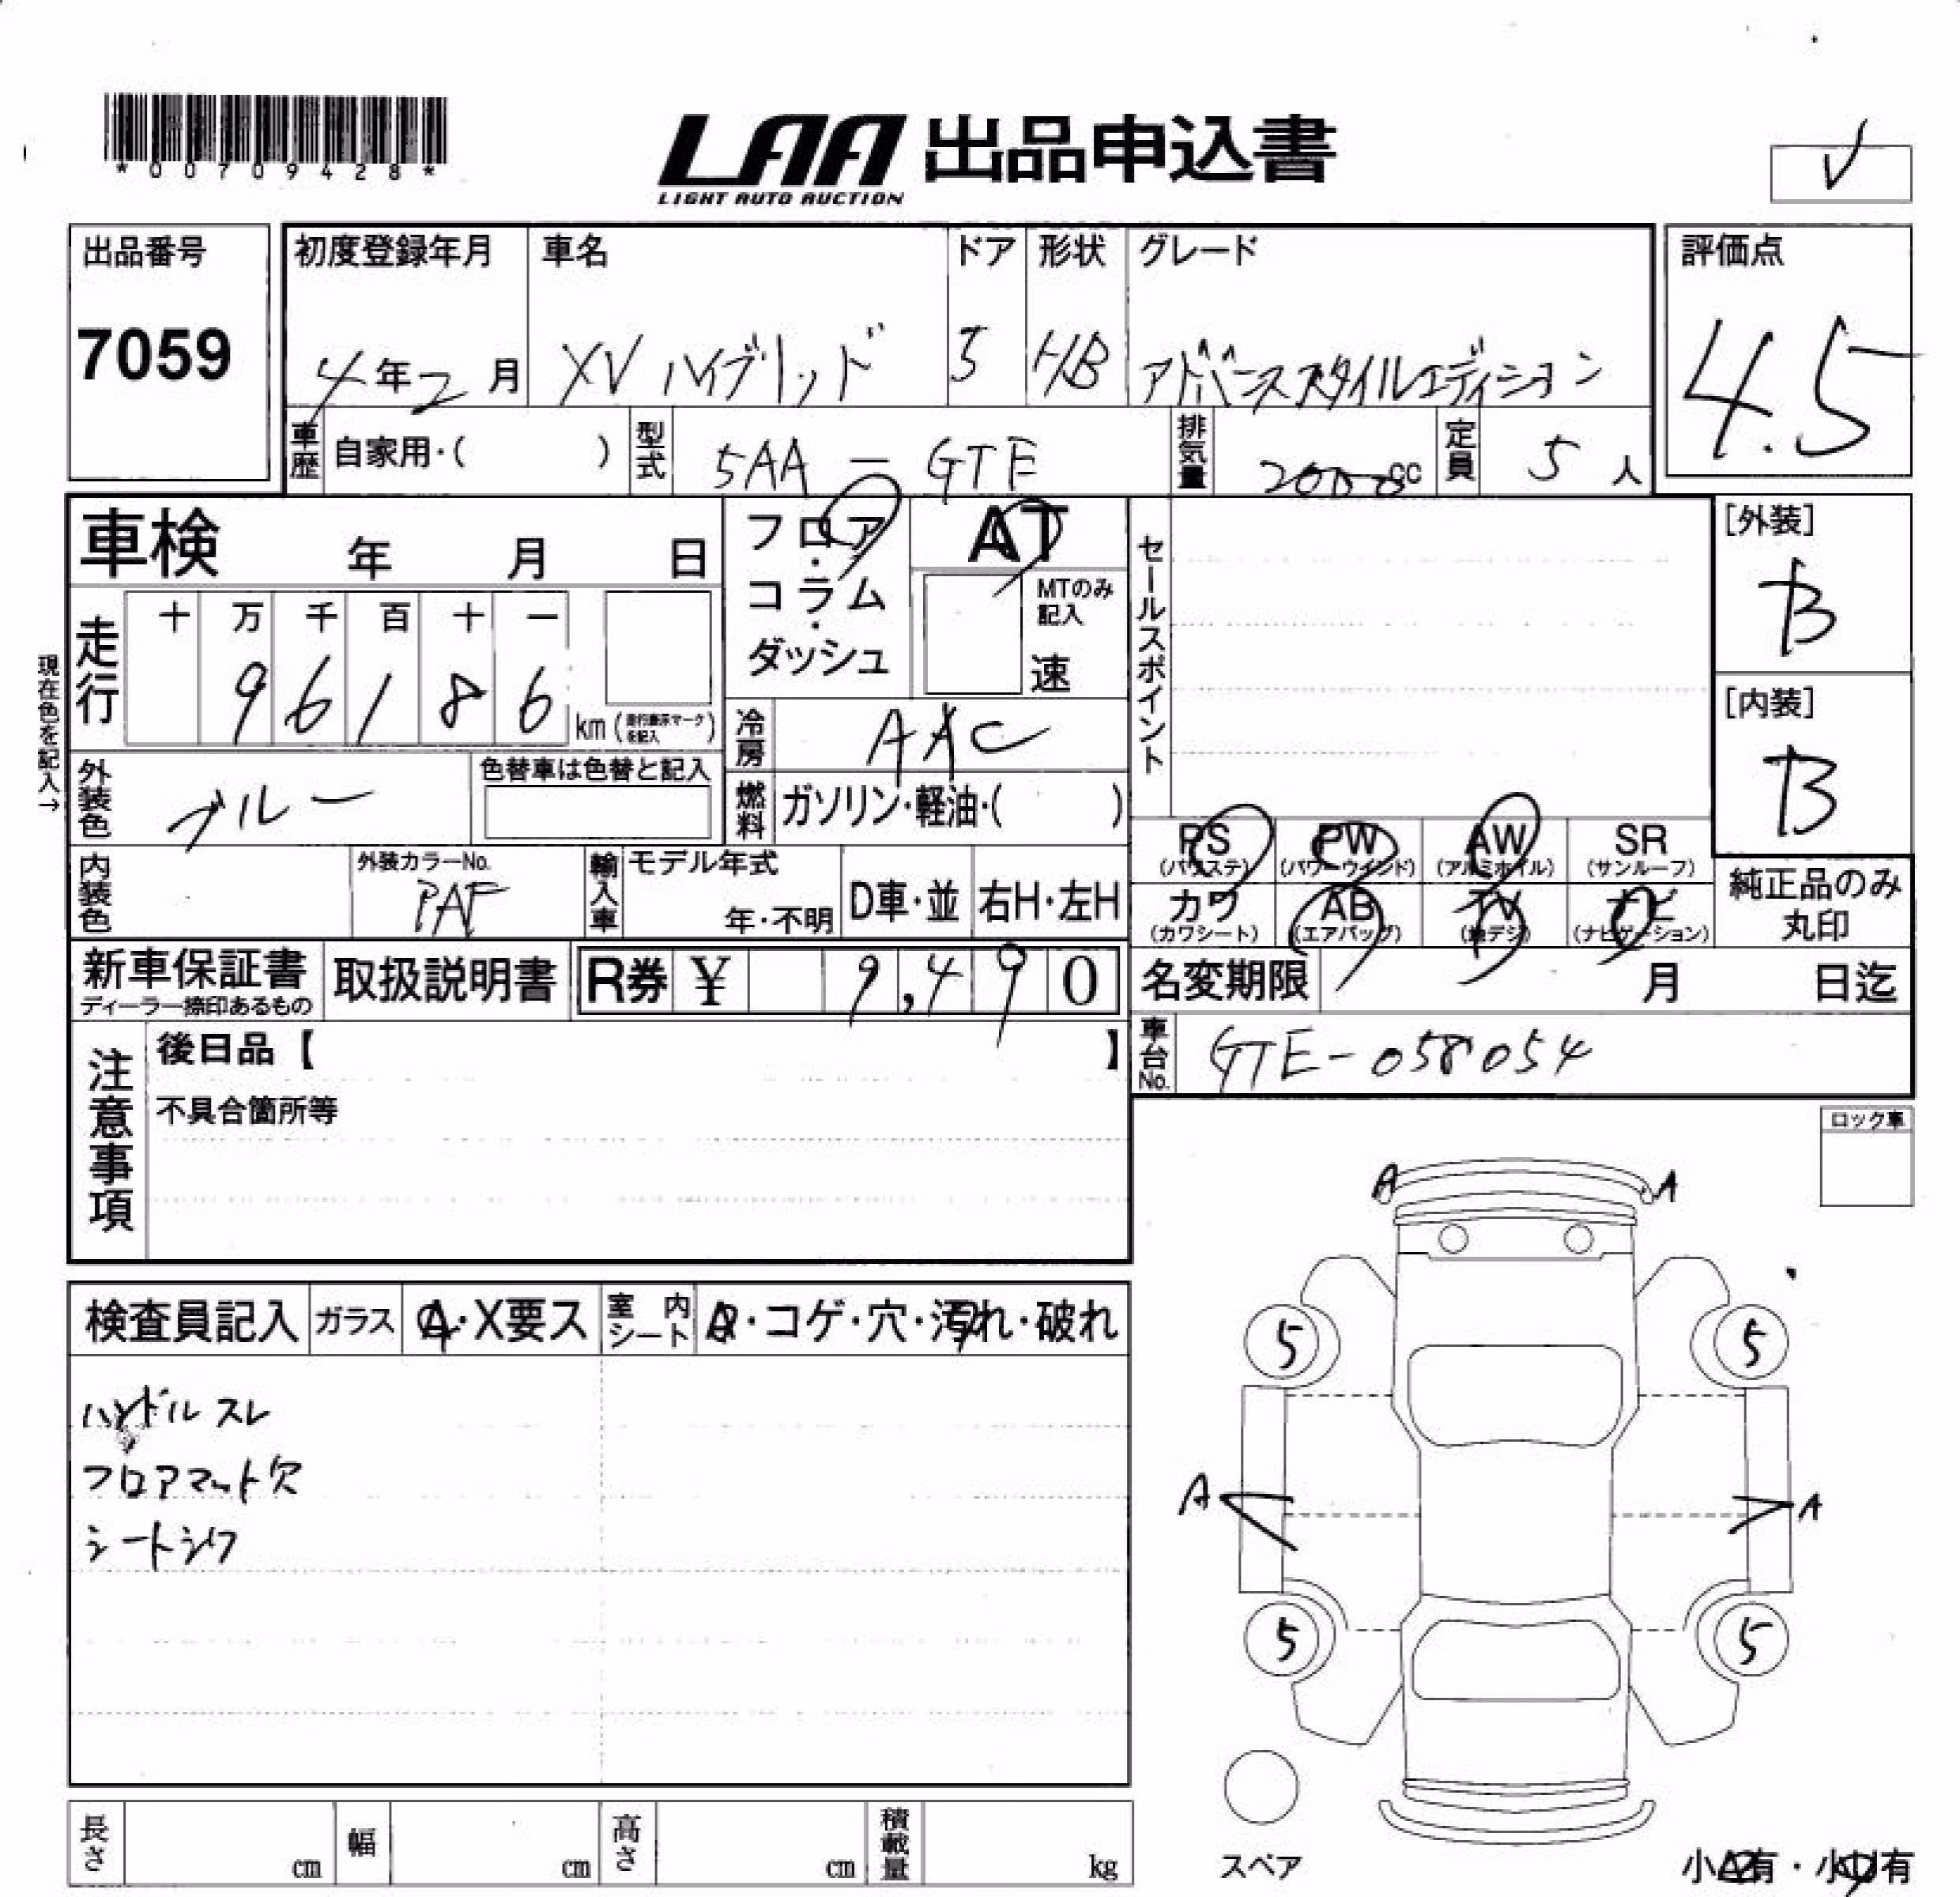 *00709428*
LAA 出品申込書
LIGHT AUTO AUCTION
出品番号
7059
初度登録年月
4年2月
車名
XV ハイブリッド
ドア
5
形状
H/B
グレード
アドバンススタイルエディション
評価点
4.5
車歴
自家用・( )
型式
5AA - GTE
排気量
2000cc
定員
5人
車検 年 月 日
フロア・コラム・ダッシュ
AT
MTのみ記入
速
セールスポイント
[外装]
B
[内装]
B
現在色を記入→
走行
十 万 千 百 十 一
9 6 1 8 6 km (走行表示マークを記入)
冷房
AAC
外装色
ブルー
色替車は色替と記入
燃料
ガソリン・軽油・( )
PS (パワステ)
PW (パワーウインド)
AW (アルミホイル)
SR (サンルーフ)
内装色
外装カラーNo.
PAF
輸入車
モデル年式
年・不明
D車・並
右H・左H
カワ (カワシート)
AB (エアバッグ)
TV (地デジ)
ナビ (ナビゲーション)
純正品のみ丸印
新車保証書
ディーラー捺印あるもの
取扱説明書
R券 ¥ 9,490
名変期限 月 日迄
注意事項
後日品【 】
不具合箇所等
車台No.
GTE-058054
ロック車
A A
検査員記入
ガラス
A・X要ス
室内シート
・コゲ・穴・汚れ・破れ
ハンドルスレ
フロアマット欠
シートシワ
5 5
A A
5 5
スペア
長さ cm
幅 cm
高さ cm
積載量 kg
小A有・小U有